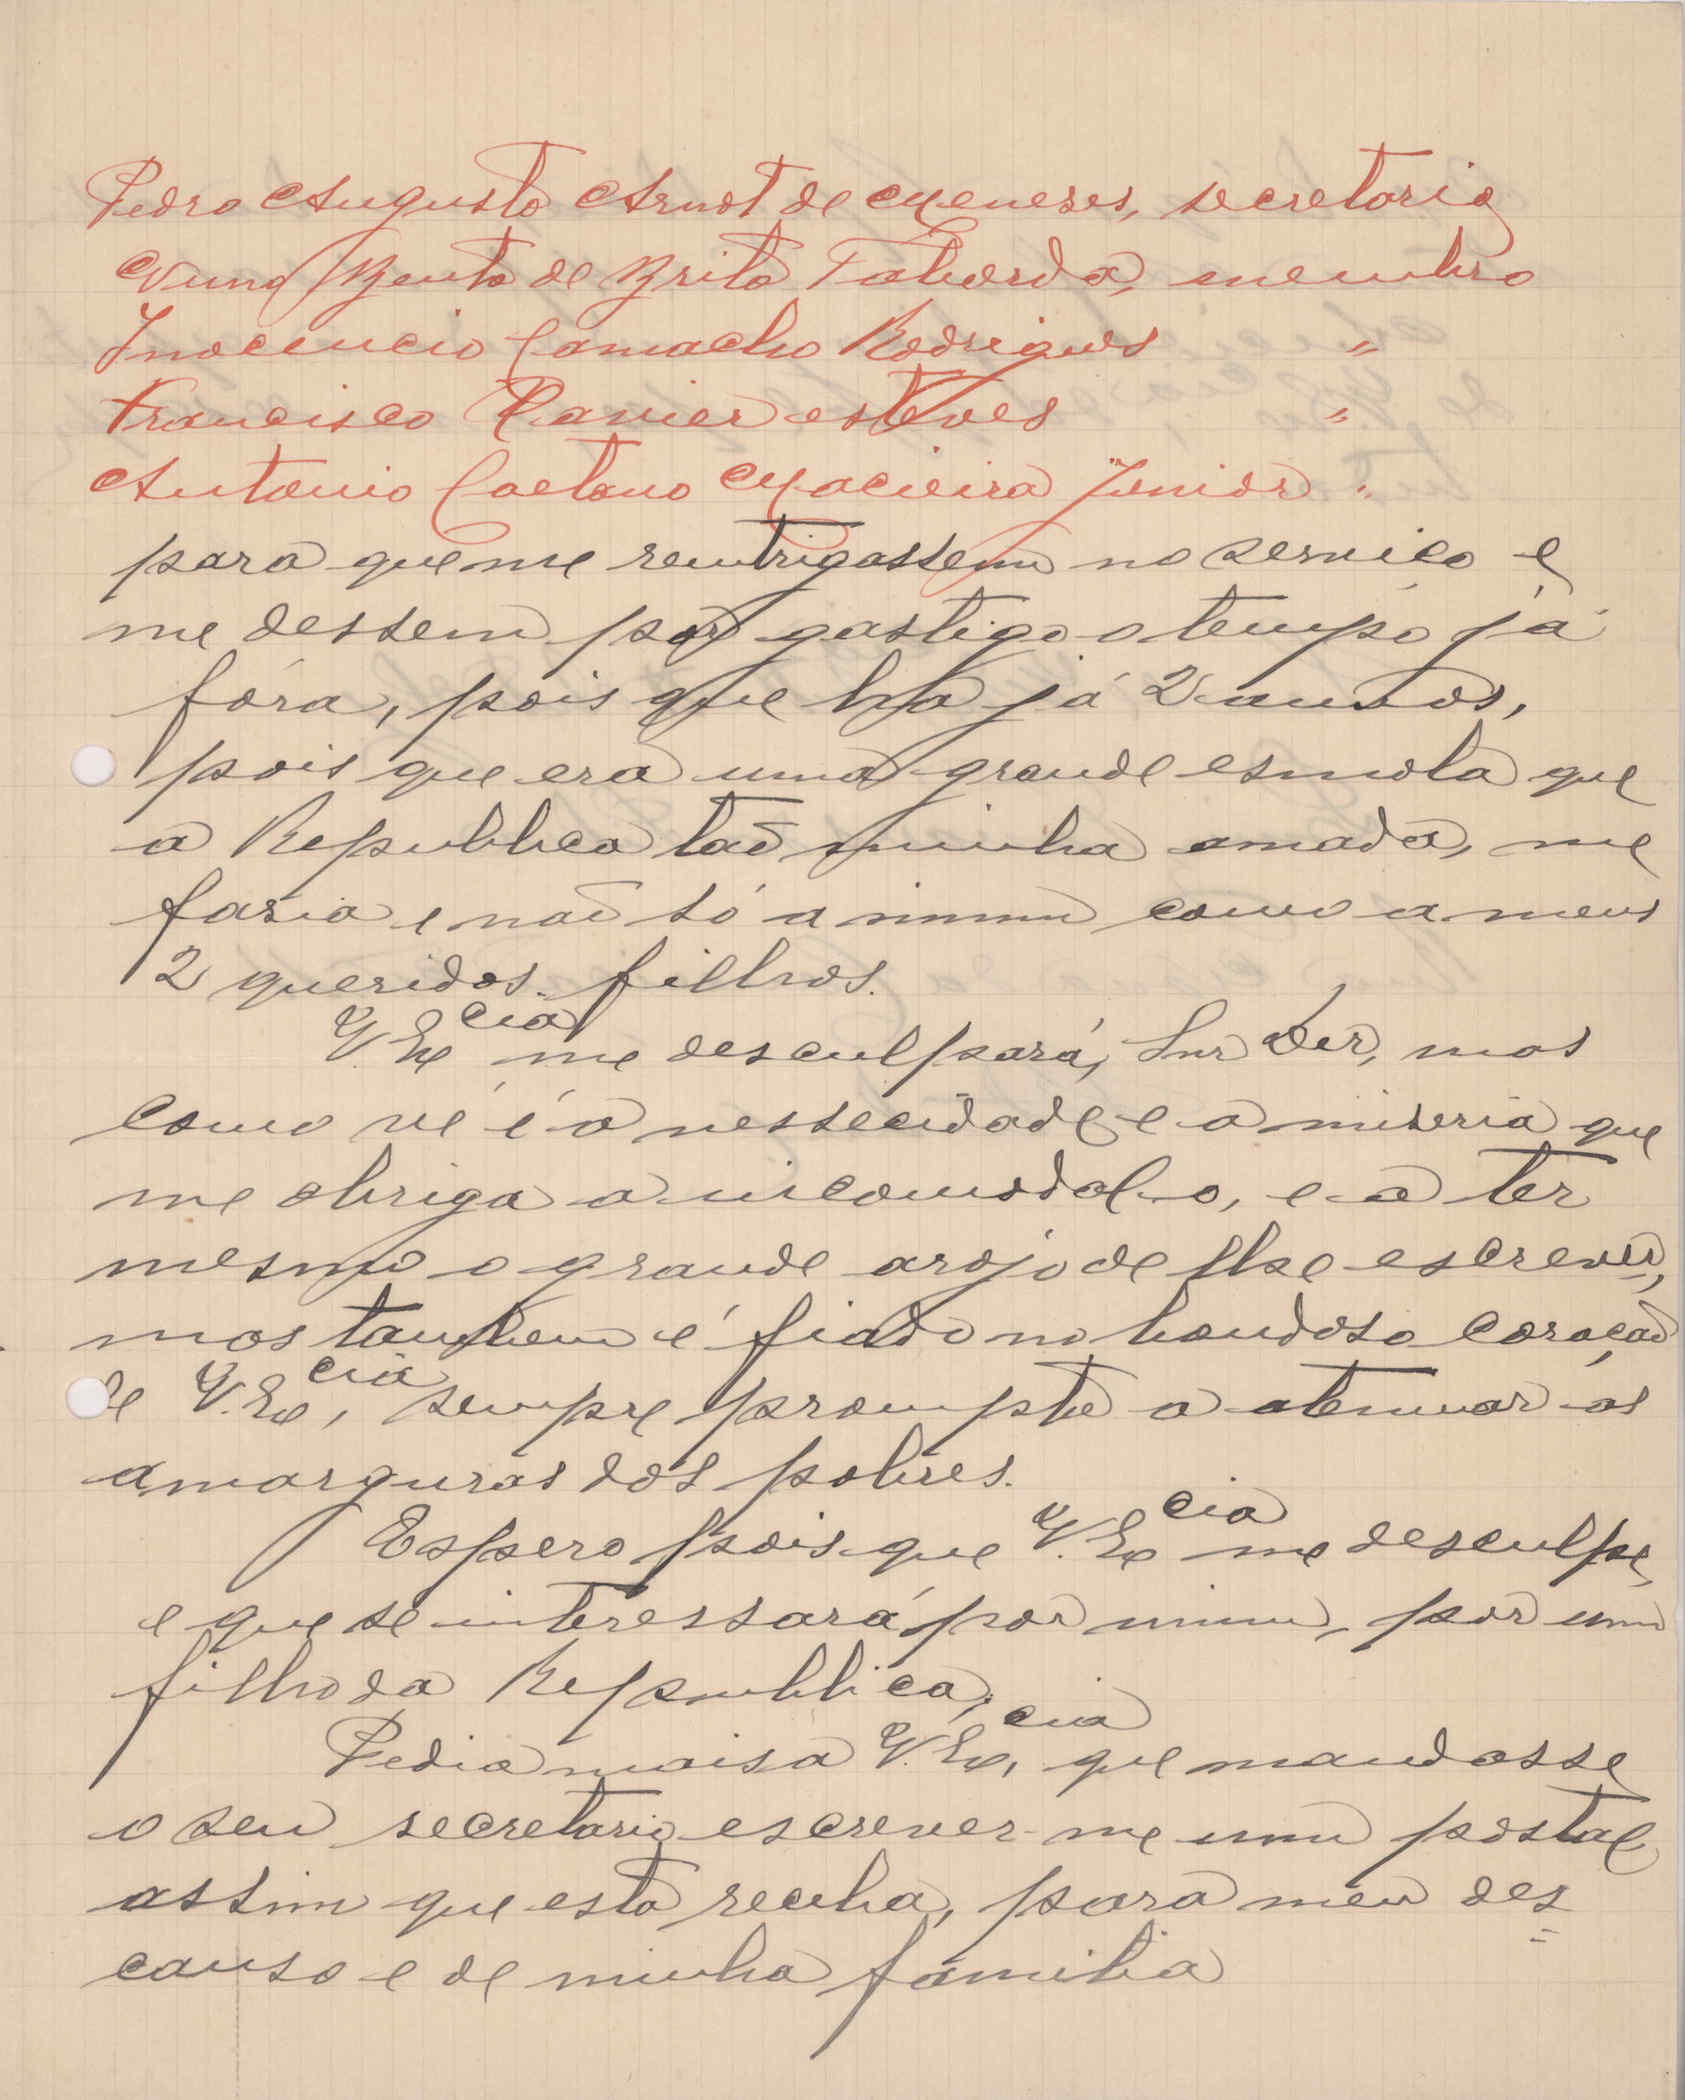 Pedro Augusto Arnot de Menezes, secretario
Nuno Bento de Brito Taborda, membro
Inocencio Camacho Rodrigues "
Francisco Xavier esteves "
Antonio Caetano Macieira Junior "
para que me reintrigassem no serviço e
me dessem por gastigo o tempo já
fóra, pois que ha já 2 annos,
pois que era uma grande esmola que
a Republica tão minha amada, me
faria e não só a mim como a meus
2 queridos filhos.
V. Ex.cia me desculpará, Snr Der, mas
como vé é a nessecidade e a miseria que
me obriga a incomodal-o, e a ter
mesmo o grande arojo de lhe escrever,
mas tambem é fiado no bondoso coração
de V. Ex.cia, sempre prompto a atenuar as
amarguras dos pobres.
Espero pois que V. Ex.cia me desculpe,
e que se interessará por mim, por um
filho da Republica,
Pedia mais a V. Ex.cia, que mandasse
o seu secretario escrever-me um postal
assim que esta receba, para meu des=
canso e de minha familia